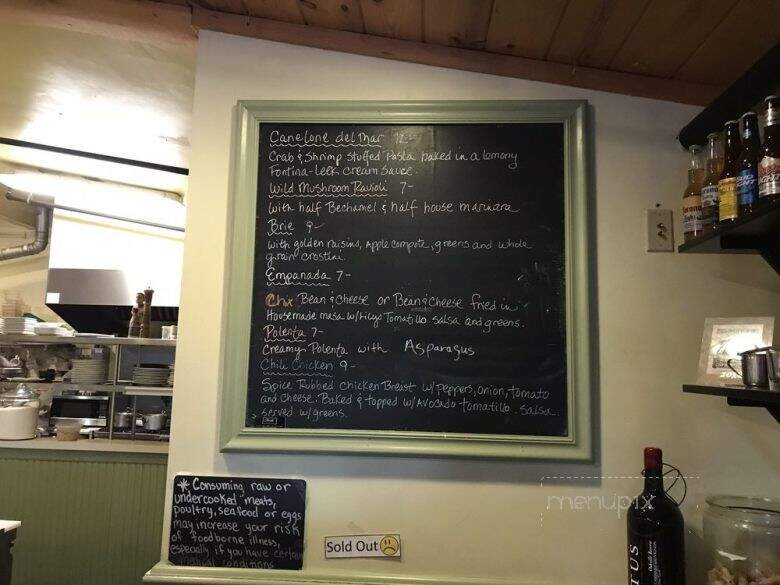 Canelone del Mar 12-
Crab & Shrimp Stuffed Pasta baked in a lemony
Fontina-Leek cream sauce.
Wild Mushroom Ravioli 7-
With half Bechamel & half house marinara
Brie 9-
with golden raisins, Apple Compote, greens and whole
grain crostini.
Empanada 7-
Chx Bean & cheese or Bean & cheese fried in
Housemade masa w/ Tomatillo salsa and greens.
Polenta 7-
Creamy Polenta with Asparagus
Chili Chicken 9-
Spice Rubbed chicken Breast w/ Peppers, onion, tomato
and cheese. Baked & topped w/ Avocado tomatillo salsa.
served w/ greens.
* Consuming raw or
undercooked meats,
poultry, seafood or eggs
may increase your risk
of foodborne illness,
especially if you have certain
medical conditions
Sold Out
menupix